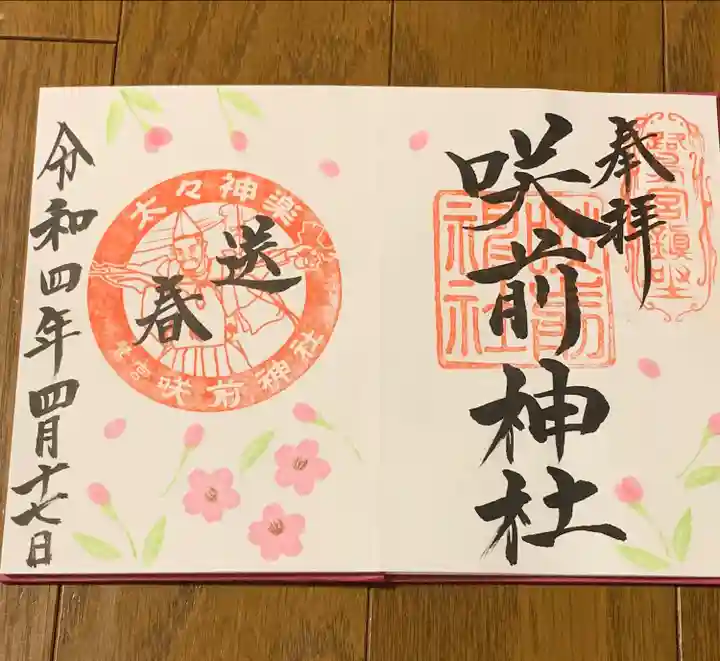 奉拝
鷺宮鎮坐
咲前神社
咲前神社
送春
太々神楽
鷺宮 咲前神社
令和四年四月十七日